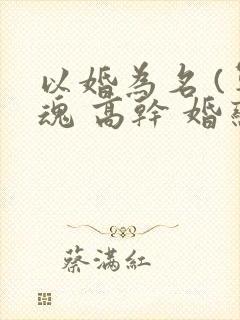 以婚為名(
魂 高幹 婚
蔡滿紅